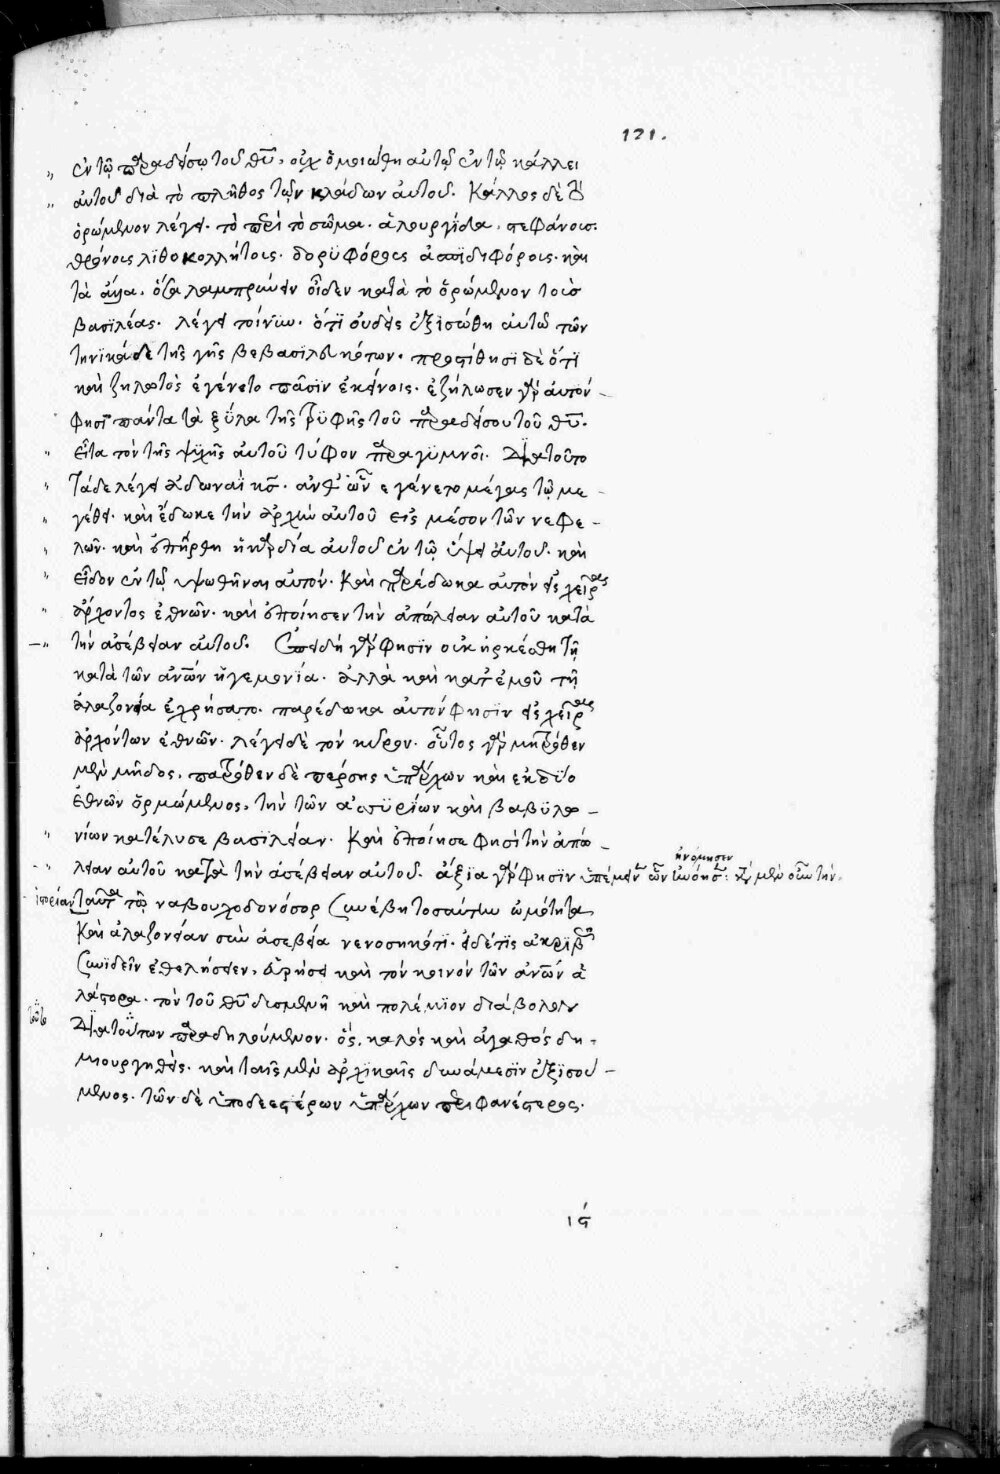 121.
ἐν τῷ παραδείσῳ τοῦ θῦ, οὐχ ὁμοιώθη αὐτῷ ἐν τῷ κάλλει
αὐτοῦ διὰ τὸ πλῆθος τῶν κλάδων αὐτοῦ. Κάλλος δὲ τὸ
ὁρώμενον λέγει. τὸ περὶ τὸ σῶμα. ἁλουργίδα, στεφάνοις.
θρόνοις λιθοκολλήτοις. δορυφόροις ἀσπιδιφόροις. καὶ
τὰ ἄλλα. ὅσα λαμπρύνειν οἶδεν κατὰ τὸ ὁρώμενον τοὺσ
βασιλέας. λέγει τοίνυν. ὅτι οὐδεὶς ἐξισώθη αὐτῷ τῶν
τηνικάδε τῆς γῆς βεβασιλευκότων. προστίθησι δὲ ὅτι
καὶ ζηλωτὸς ἐγένετο πᾶσιν ἐκείνοις. ἐζήλωσεν γὰρ αὐτόν
φησι πάντα τὰ ξύλα τῆς τρυφῆς τοῦ παραδείσου τοῦ θῦ.
εἶτα τὸν τῆς ψυχῆς αὐτοῦ τύφον παραγυμνοῖ. Διατοῦτο
τάδε λέγει ἀδωναῒ κσ. ἀνθ' ὧν ἐγένετο μέγας τῷ με-
γέθει. καὶ ἔδωκε τὴν ἀρχὴν αὐτοῦ εἰς μέσον τῶν νεφε-
λῶν. καὶ ἐπήρθη ἡ καρδία αὐτοῦ ἐν τῷ ὕψει αὐτοῦ. καὶ
εἶδον ἐν τῷ ὑψωθῆναι αὐτόν. Καὶ παρέδωκα αὐτὸν εἰς χεῖρας
ἄρχοντος ἐθνῶν. καὶ ἐποίησεν τὴν ἀπώλειαν αὐτοῦ κατὰ
τὴν ἀσέβειαν αὐτοῦ. Ἐπειδὴ γάρ φησιν οὐκ ἠρκέσθη τῇ
κατὰ τῶν ἀνῶν ἡγεμονία. ἀλλὰ καὶ κατ' ἐμοῦ τῇ
ἀλαζονεία ἐχρήσατο. παρέδωκα αὐτόν φησιν εἰς χεῖρας
ἀρχόντων ἐθνῶν. λέγει δὲ τὸν κύρον. οὗτος γὰρ μητρόθεν
μὲν μῆδος, πατρόθεν δὲ πέρσης ὑπάρχων καὶ ἐκ δύο
ἐθνῶν ὁρμώμενος, τὴν τῶν ἀσσυρίων καὶ βαβυλω-
νίων κατέλυσε βασιλείαν. Καὶ ἐποίησε φησὶ τὴν ἀπώ-
λειαν αὐτοῦ κατὰ τὴν ἀσέβειαν αὐτοῦ. ἄξια γάρ φησιν ὑπέμεινεν ὧν ἠνόμησεν
ἱστορίαν ταῦτα τῷ ναβουχοδονόσορ συνέβη τοσαύτην ὠμότητα
Καὶ ἀλαζονείαν σὺν ἀσεβεία νενοσηκότι. εἰ δέ τις ἀκριβῶς
συνϊδεῖν ἐθελήσειεν, εὑρήσει καὶ τὸν κοινὸν τῶν ἀνῶν ἀ
λάστορα. τὸν τοῦ θῦ δυσμενῆ καὶ πολέμιον διάβολον
Διατούτων παραδηλούμενον. ὅς, καλὸς καὶ ἀγαθός δη-
μιουργηθείς. καὶ ταῖς μὲν ἀρχικαῖς δυνάμεσιν ἐξισού-
μενος. τῶν δὲ ὑποδεεστέρων ὑπάρχων περιφανέστερος.
ιϛ